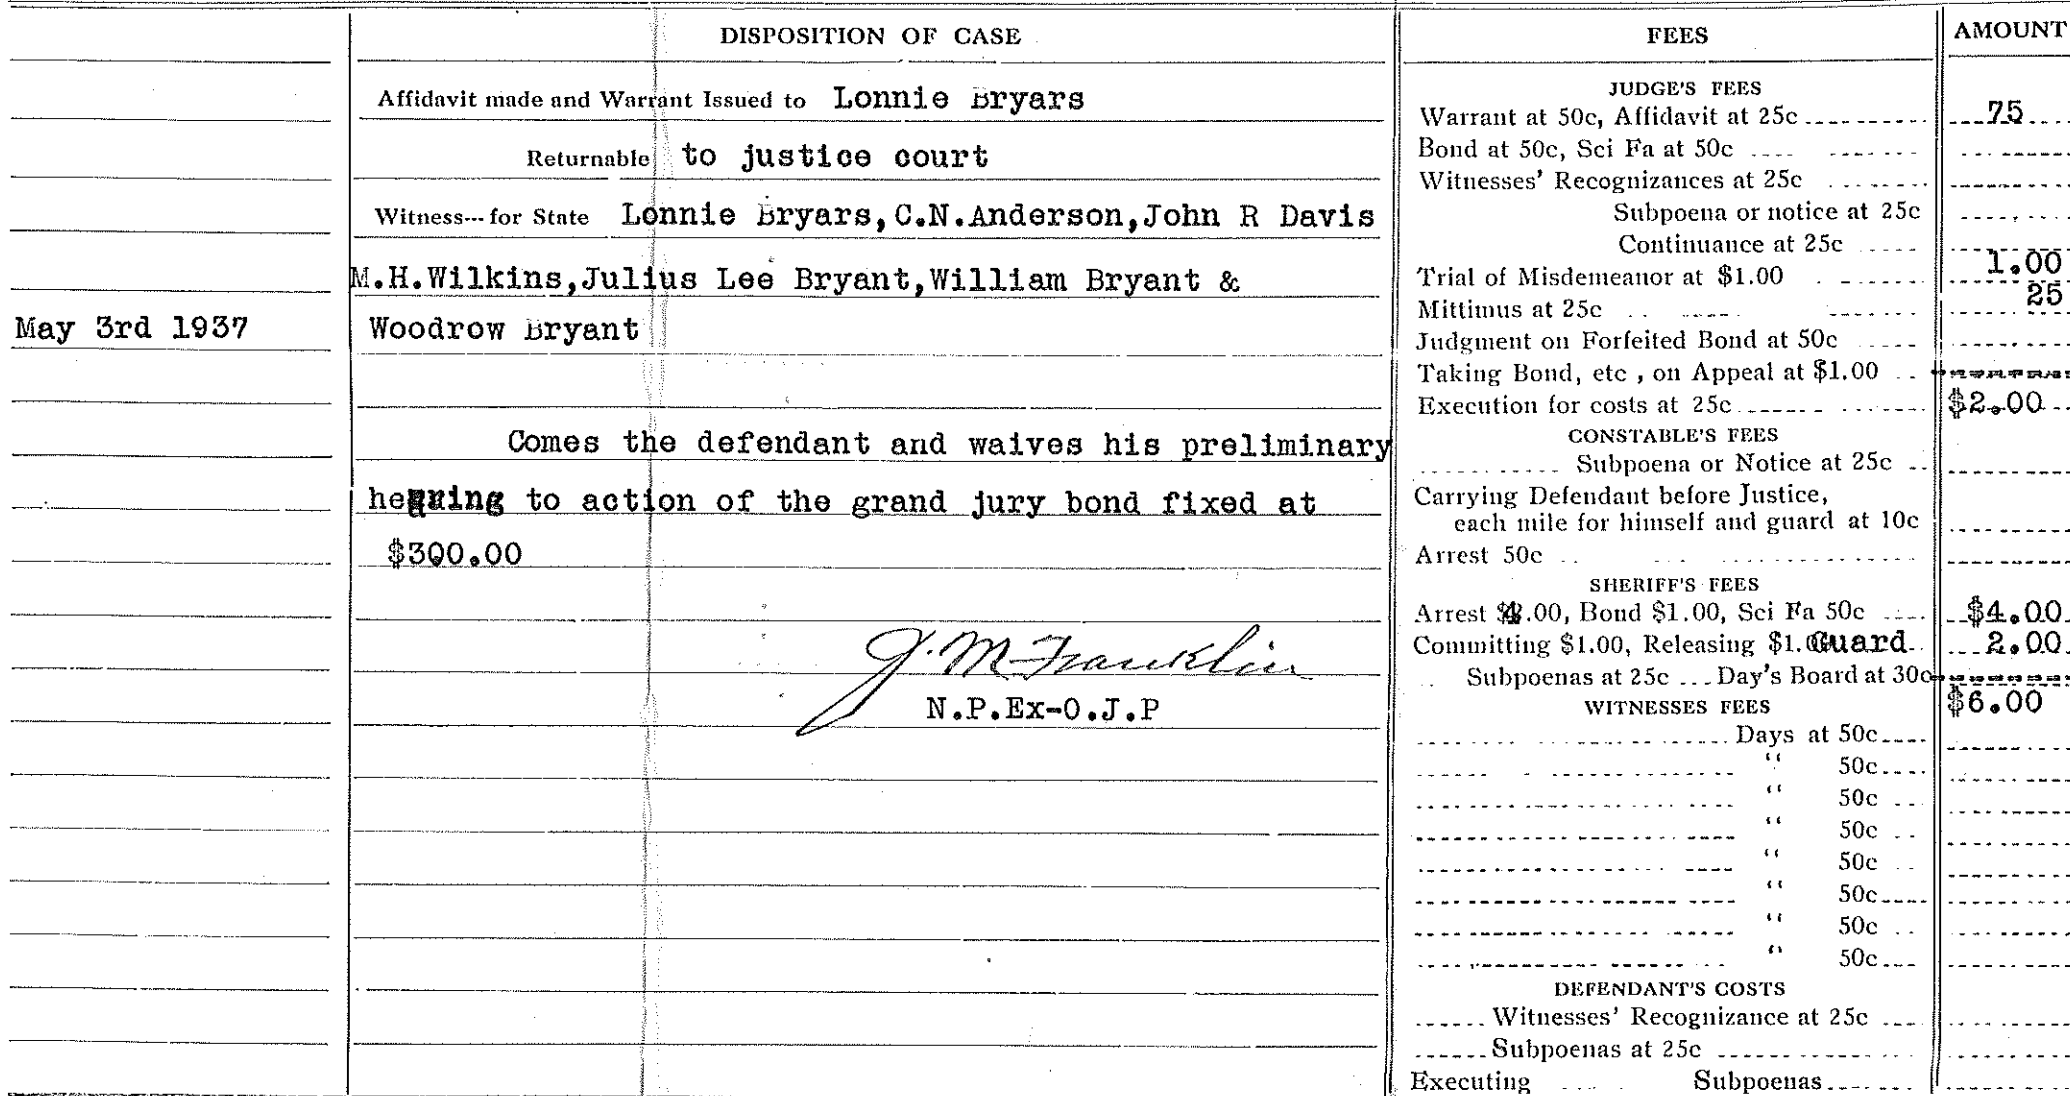 DISPOSITION OF CASE
Affidavit made and Warrant Issued to Lonnie Bryars
Returnable to justice court
Witness---for State Lonnie Bryars,C.N.Anderson,John R Davis
M.H.Wilkins,Julius Lee Bryant,William Bryant &
May 3rd 1937 Woodrow Bryant
Comes the defendant and waives his preliminary
hearing to action of the grand jury bond fixed at
$300.00
J. M Franklin
N.P.Ex-O.J.P
FEES AMOUNT
JUDGE'S FEES
Warrant at 50c, Affidavit at 25c 75
Bond at 50c, Sci Fa at 50c
Witnesses' Recognizances at 25c
Subpoena or notice at 25c
Continuance at 25c
Trial of Misdemeanor at $1.00 1.00
Mittimus at 25c 25
Judgment on Forfeited Bond at 50c
Taking Bond, etc , on Appeal at $1.00
Execution for costs at 25c $2.00
CONSTABLE'S FEES
Subpoena or Notice at 25c
Carrying Defendant before Justice,
each mile for himself and guard at 10c
Arrest 50c
SHERIFF'S FEES
Arrest $4.00, Bond $1.00, Sci Fa 50c $4.00
Committing $1.00, Releasing $1.00 Guard 2.00
Subpoenas at 25c Day's Board at 30c
$6.00
WITNESSES FEES
Days at 50c
" 50c
" 50c
" 50c
" 50c
" 50c
" 50c
" 50c
DEFENDANT'S COSTS
Witnesses' Recognizance at 25c
Subpoenas at 25c
Executing Subpoenas